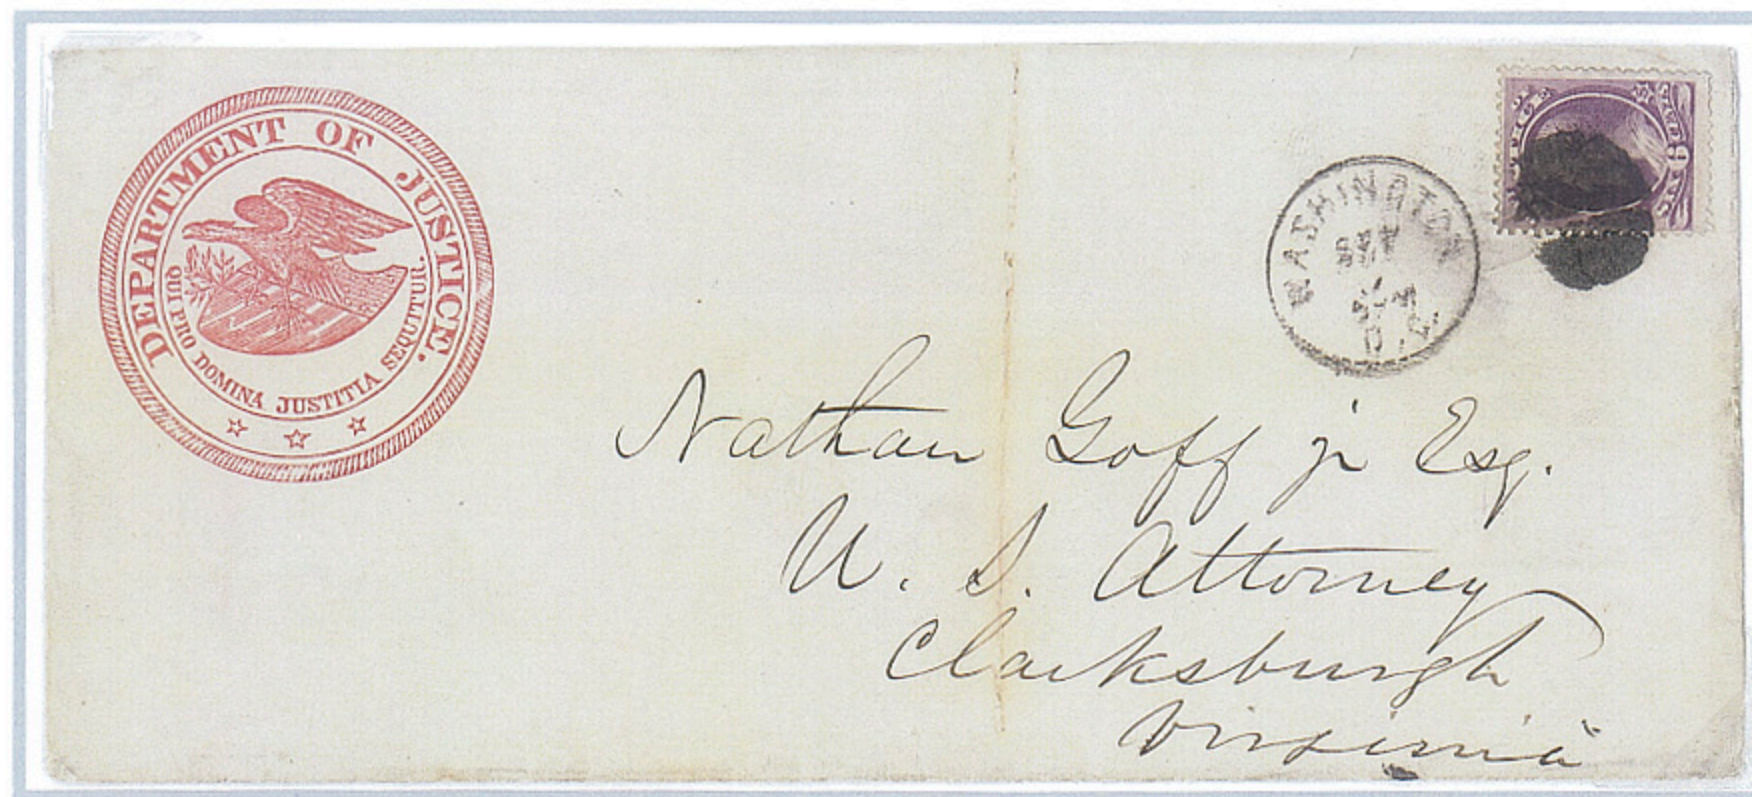 DEPARTMENT OF JUSTICE.
QUI PRO DOMINA JUSTITIA SEQUITUR.
WASHINGTON
D.C.
Nathan Goff jr Esq.
U. S. Attorney
Clarksburgh
Virginia